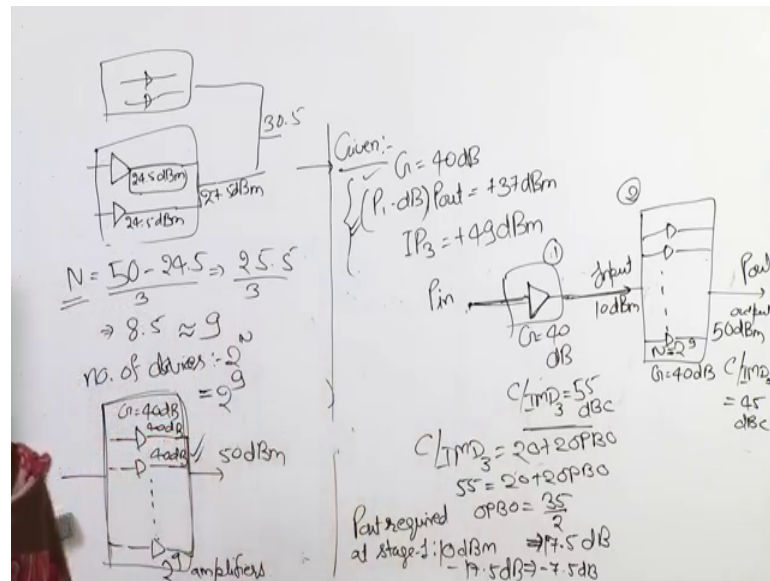 30.5
24.5dBm
24.5dBm
27.5dBm
N = 50-24.5 ⇒ 25.5
3 3
⇒ 8.5 ≈ 9
no. of devices:- 2^N
= 2^9
G=40dB
40dB
40dB
50dBm
2^9 amplifiers
Given:-
G = 40dB
(P1-dB) Pout = +37dBm
IP3 = +49dBm
①
Pin
G=40
dB
Input
10dBm
②
N=2^9
G=40dB
Pout
output
50dBm
C/IMD3
= 45
dBc
C/IMD3 = 55
dBc
C/IMD3 = 20+2OPBO
55 = 20+2OPBO
OPBO = 35
2
⇒ 17.5 dB
Pout required
at stage-1: 10dBm
-17.5dB ⇒ -7.5dB